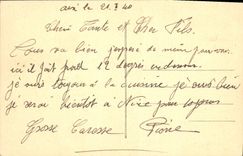 le 21.3.40
Chère Tante et Cher Fils.
Tous va bien j'espère de même pour vous
ici il fait froid 12 degrés en dessous
je suis toujours à la cuisine je suis bien
je serai bientôt à Nice pour toujours
Grosse Caresse